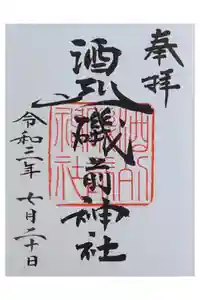 奉拝
酒列磯前神社
令和三年 七月二十日